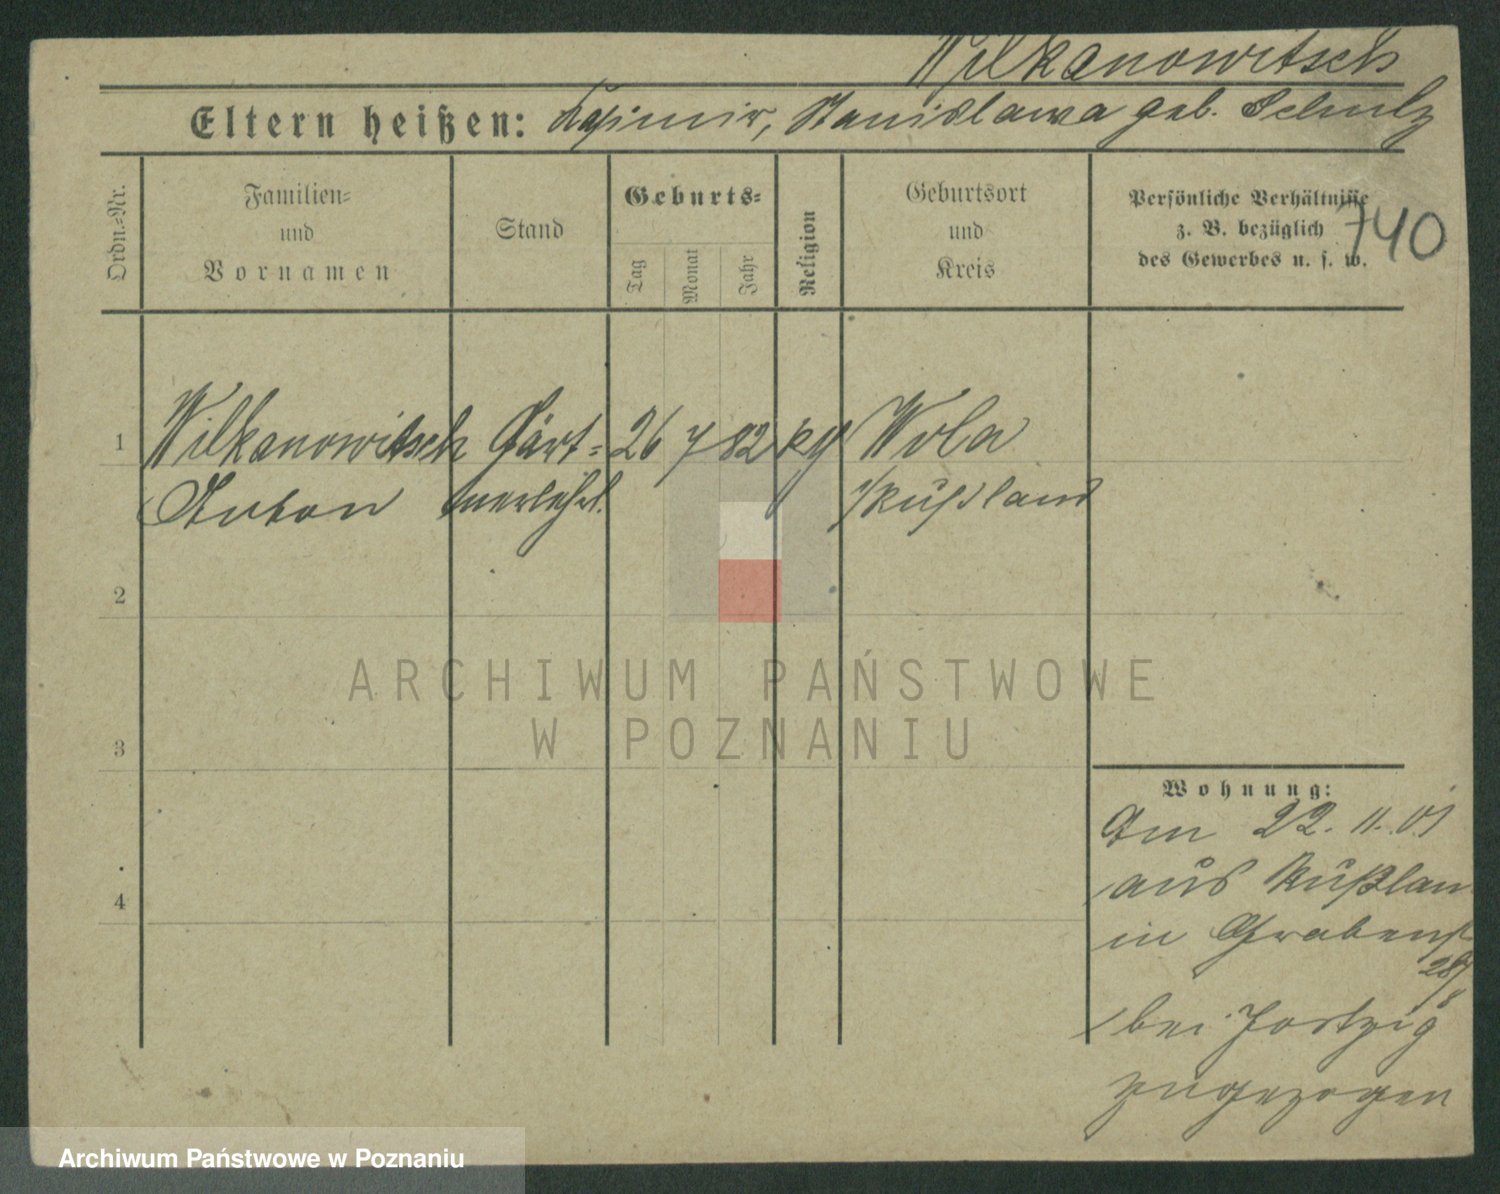 Wilkanowitsch
Eltern heißen: Kasimir, Stanislawa geb. Schulz
Ordn.=Nr.
Familien=
und
Vornamen
Stand
Geburts=
Tag
Monat
Jahr
Religion
Geburtsort
und
Kreis
Persönliche Verhältnisse
z. B. bezüglich
des Gewerbes u. s. w.
740
1 Wilkanowitsch Gärt= 26 7 82 Wola
Anton nerlehrl. Rußland
2
3
4
Wohnung:
Am 22. 11. 01
aus Rußlan
in Grabenst
bei
zugezogen
ARCHIWUM PAŃSTWOWE
W POZNANIU
Archiwum Państwowe w Poznaniu